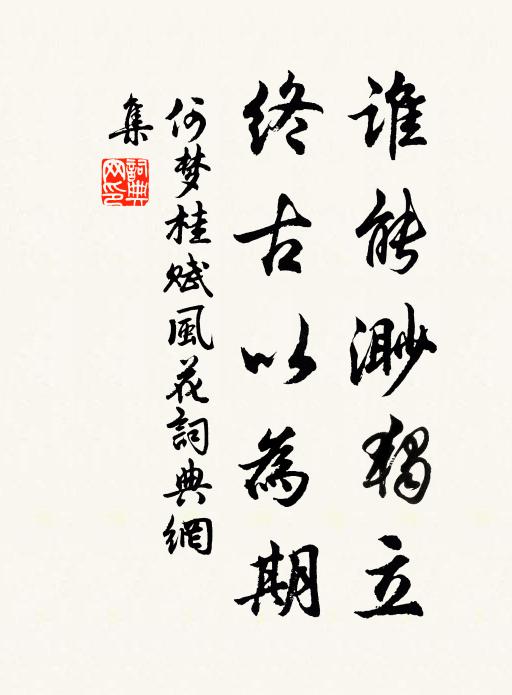 誰能渺獨立
終古以為期
何梦桂赋風花詞典網
集
詞典
网印